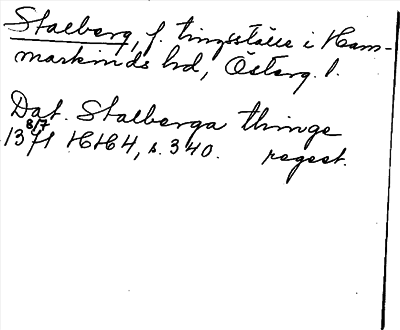 Stalberg, f. tingsställe i Ham-
markinds hd, Österg. l.
Dat. Stalberga thinge
1371 8/7 HH4, s. 340. regest.